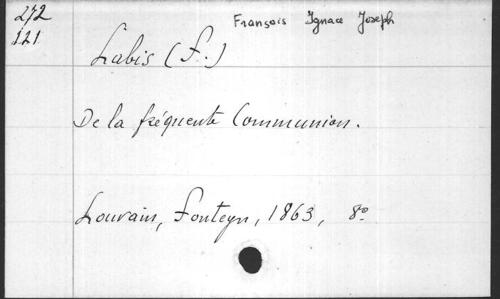 272
121
François Ignace Joseph
Labis (F..)
De la fréquente Communion.
Louvain, Fonteyn, 1863, 8º